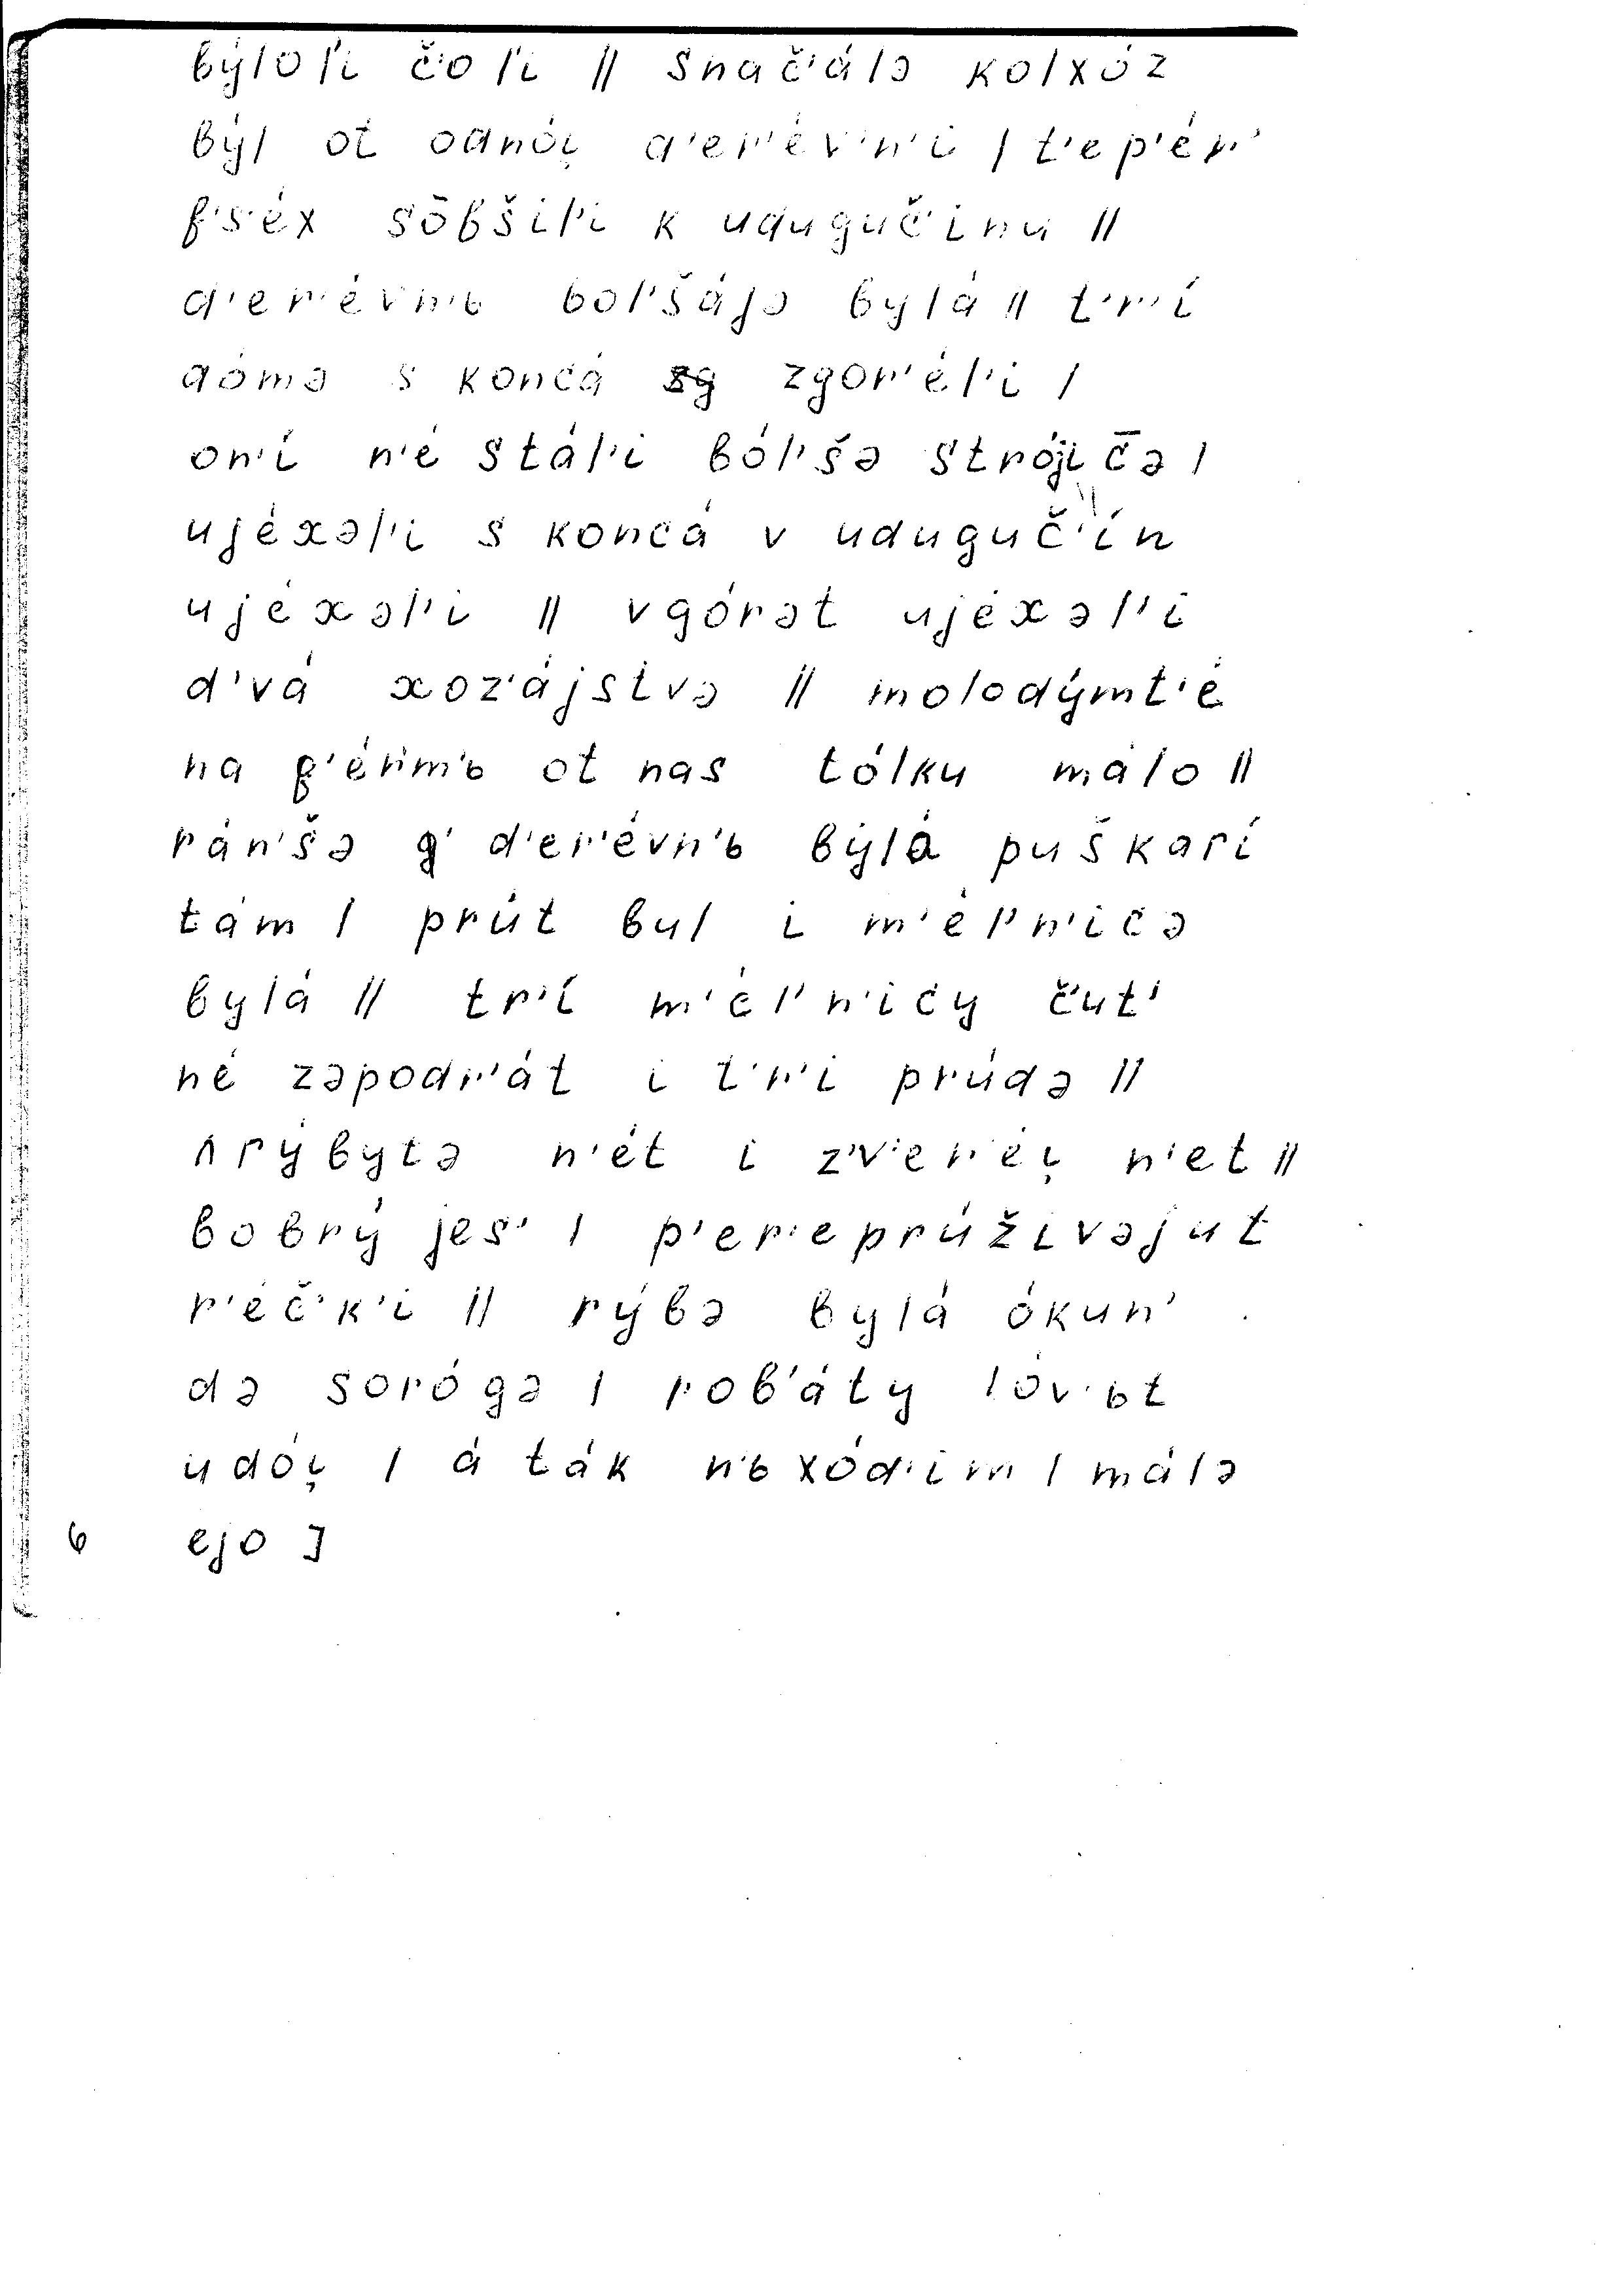 býlol'i č'ol'i || snač'álə kolxóz
býl ot odnói̯ d'er'évn'i | t'ep'ér'
f's'éx sōbšil'i k uduguč'inu ||
d'er'évn'ь bol'šájə bylá || t'r'í
dómə s koncá zgor'él'i |
on'í n'é stál'i ból'šə strójic̄ə |
ujéxəl'i s koncá v uduguč'ín
ujéxəl'i || vgórət ujéxəl'i
d'vá xoz'ájstvə || molodýmt'é
na f'érm'ь ot nas tólku málo ||
rán'šə d'er'évn'ь bylá puškarí
tám | prút byl i m'él'n'icə
bylá || tr'í m'él'n'icy č'ut'
né zəpodr'át i t'r'i prúdə ||
Λ rýbytə n'ét i z'v'er'éi̯ n'et ||
bobrý jes' | p'er'eprúživəjut
r'éč'k'i || rýbə bylá ókun'
də sorógə | rob'áty lóv'ьt
udói̯ | á ták n'ь xód'im | málə
6 ejo ]